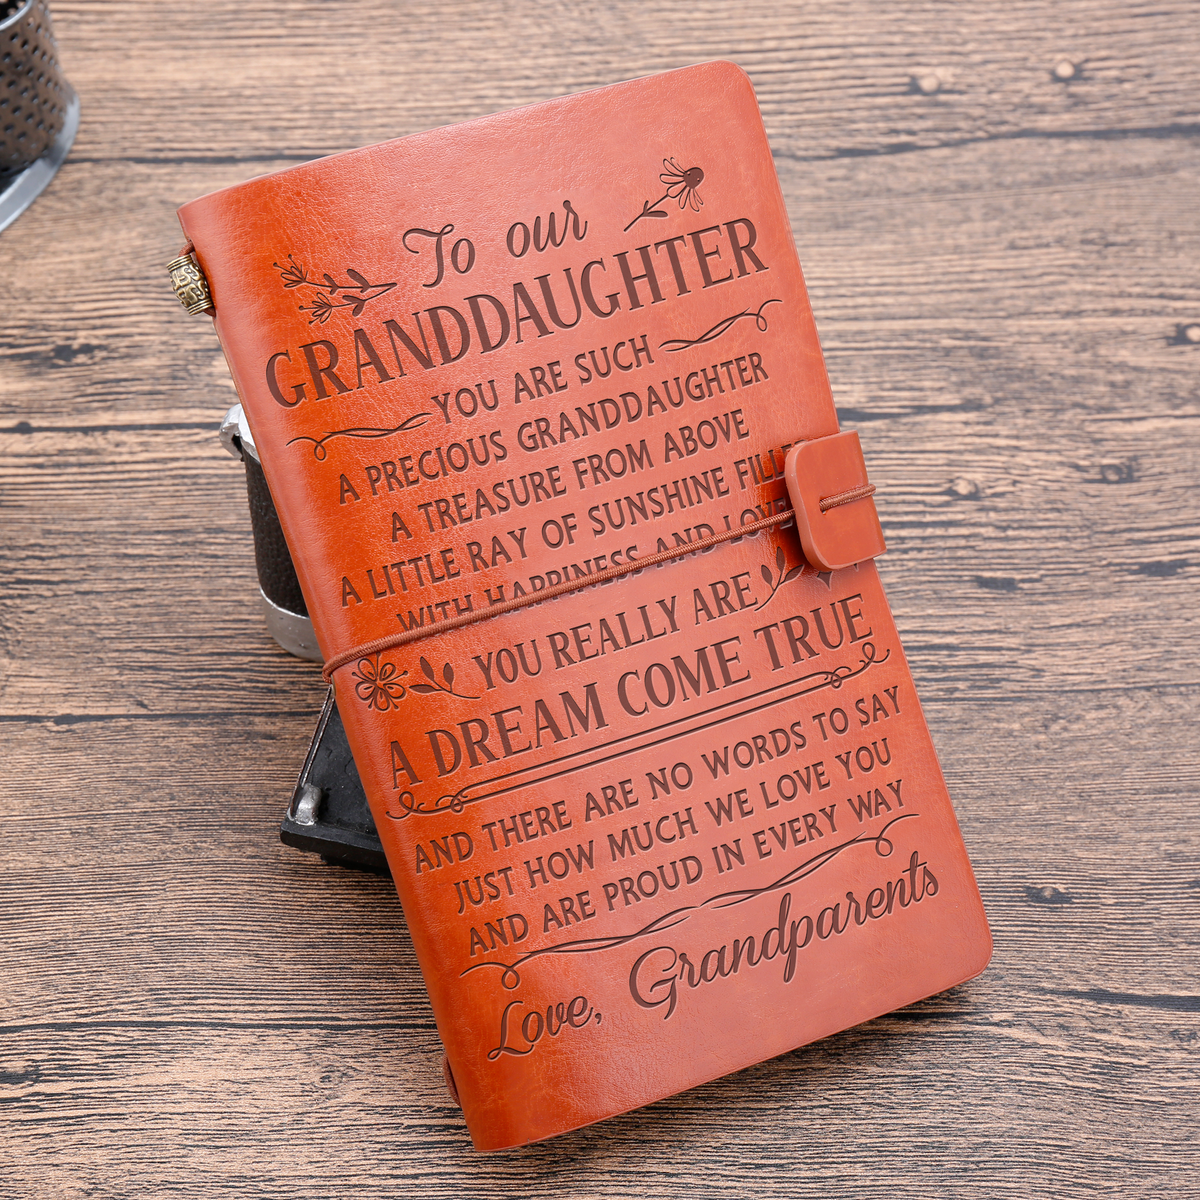 To our
GRANDDAUGHTER
YOU ARE SUCH
A PRECIOUS GRANDDAUGHTER
A TREASURE FROM ABOVE
A LITTLE RAY OF SUNSHINE FILLE
WITH HAPPINESS AND LOVE
YOU REALLY ARE
A DREAM COME TRUE
AND THERE ARE NO WORDS TO SAY
JUST HOW MUCH WE LOVE YOU
AND ARE PROUD IN EVERY WAY
Love, Grandparents